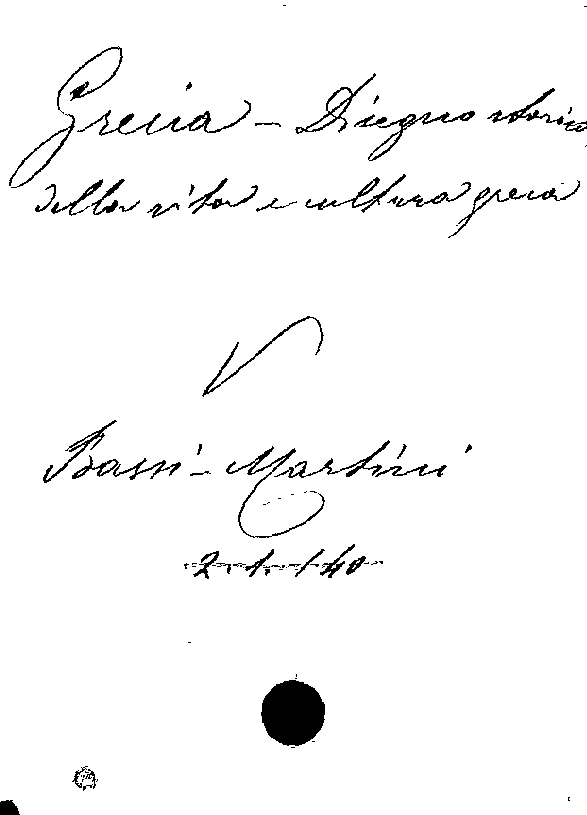 Grecia - Disegno storico
della vita e cultura greca
V
Bassi - Martini
2.1.140